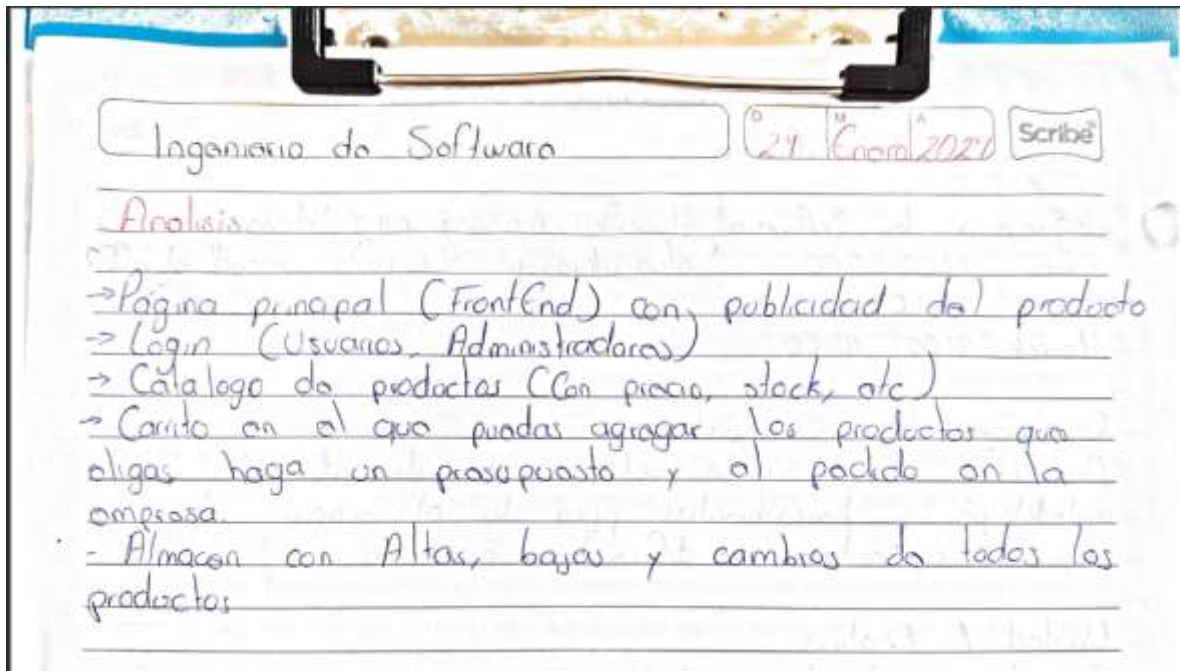 Ingenieria de Software
D M A
24 Enero 2024
Scribe
Analisis
→Página principal (FrontEnd) con publicidad del producto
→ Login (Usuarios, Administradores)
→ Catalogo de productos (Con precio, stock, etc)
→ Carrito en el que puedas agregar los productos que
eligas haga un presupuesto y el pedido en la
empresa.
- Almacen con Altas, bajas y cambios de todos los
productos